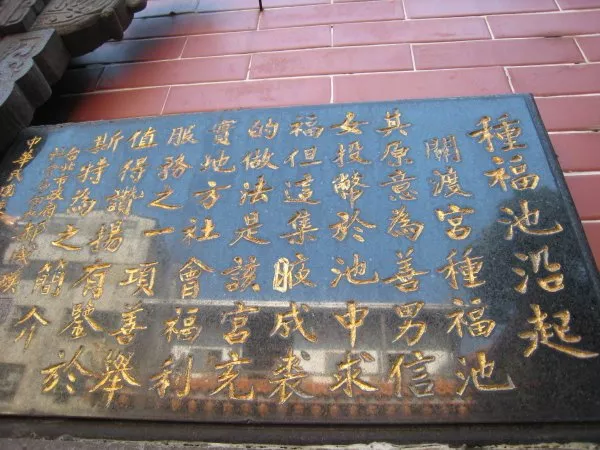 種福池沿起
關渡宮種福池
其原意為善男信
女投幣於池中求
福但這集腋成裘
的做法是該宮充
實地方社會福利
服務之一項善舉
值得讚揚有鑒於
斯特為之簡介
台北市
中華民國